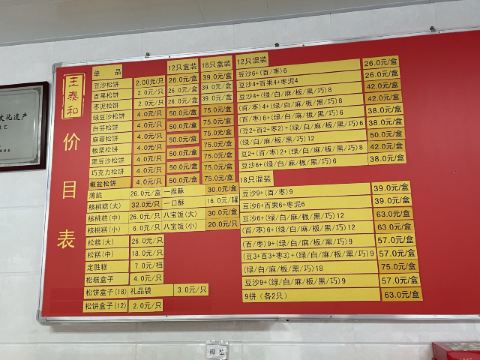 王泰和
价目表
单品 12只盒装 18只盒装
豆沙松饼 2.00元/只 26.0元/盒 39.0元/盒
百果松饼 2.0元/只 26.0元/盒 39.0元/盒
枣泥松饼 2.0元/只 26.0元/盒 39.0元/盒
绿豆沙松饼 4.0元/只 50.0元/盒 75.0元/盒
白芸松饼 4.0元/只 50.0元/盒 75.0元/盒
麻蓉松饼 4.0元/只 50.0元/盒 75.0元/盒
板栗松饼 4.0元/只 50.0元/盒 75.0元/盒
黑豆沙松饼 4.0元/只 50.0元/盒 75.0元/盒
巧克力松饼 4.0元/只 50.0元/盒 75.0元/盒
椒盐松饼 4.0元/只 50.0元/盒 75.0元/盒
薄脆 26.0元/盒 一微酥 30.0元/盒
核桃糕(大) 32.0元/只 一口酥 16.0元/罐
核桃糕(中) 26.0元/只 八宝饭(大) 30.0元/只
核桃糕(小) 6.0元/只 八宝饭(小) 20.0元/只
松糕(大) 26.0元/只
松糕(中) 18.0元/只
定胜糕 7.0元/档
松糕盒子 4.0元/只
松饼盒子(18) 礼品袋 3.0元/只
松饼盒子(12) 2.0元/只
12只混装
豆沙6+(百/枣)6 26.0元/盒
豆沙4+百果4+枣泥4 26.0元/盒
豆沙6+(绿/白/麻/板/黑/巧)6 38.0元/盒
(百/枣)6+(绿/白/麻/板/黑/巧)6 38.0元/盒
(绿/白/麻/板/黑/巧)12 50.0元/盒
38.0元/盒
18只混装
豆沙9+(百/枣)9 39.0元/盒
豆沙6+百果6+枣泥6 39.0元/盒
豆沙6+(绿/白/麻/板/黑/巧)12 63.0元/盒
(百/枣)6+(绿/白/麻/板/黑/巧)12 63.0元/盒
(百/枣)9+(绿/白/麻/板/黑/巧)9 57.0元/盒
57.0元/盒
(绿/白/麻/板/黑/巧)18 75.0元/盒
豆沙9+(绿/白/麻/板/黑/巧)9 57.0元/盒
9拼(各2只) 63.0元/盒